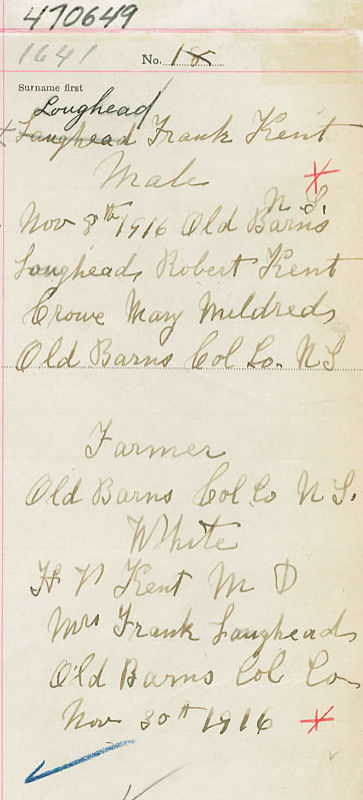 470649
1641 No. 18
Surname first
Loughead
Laughead Frank Kent
Male
N S.
Nov 8th 1916 Old Barns
Laughead, Robert Kent
Crowe Mary Mildred
Old Barns Col Co. N S
Farmer
Old Barns Col Co N S.
White
H V Kent M D
Mrs Frank Laughead
Old Barns Col Co
Nov 30th 1916